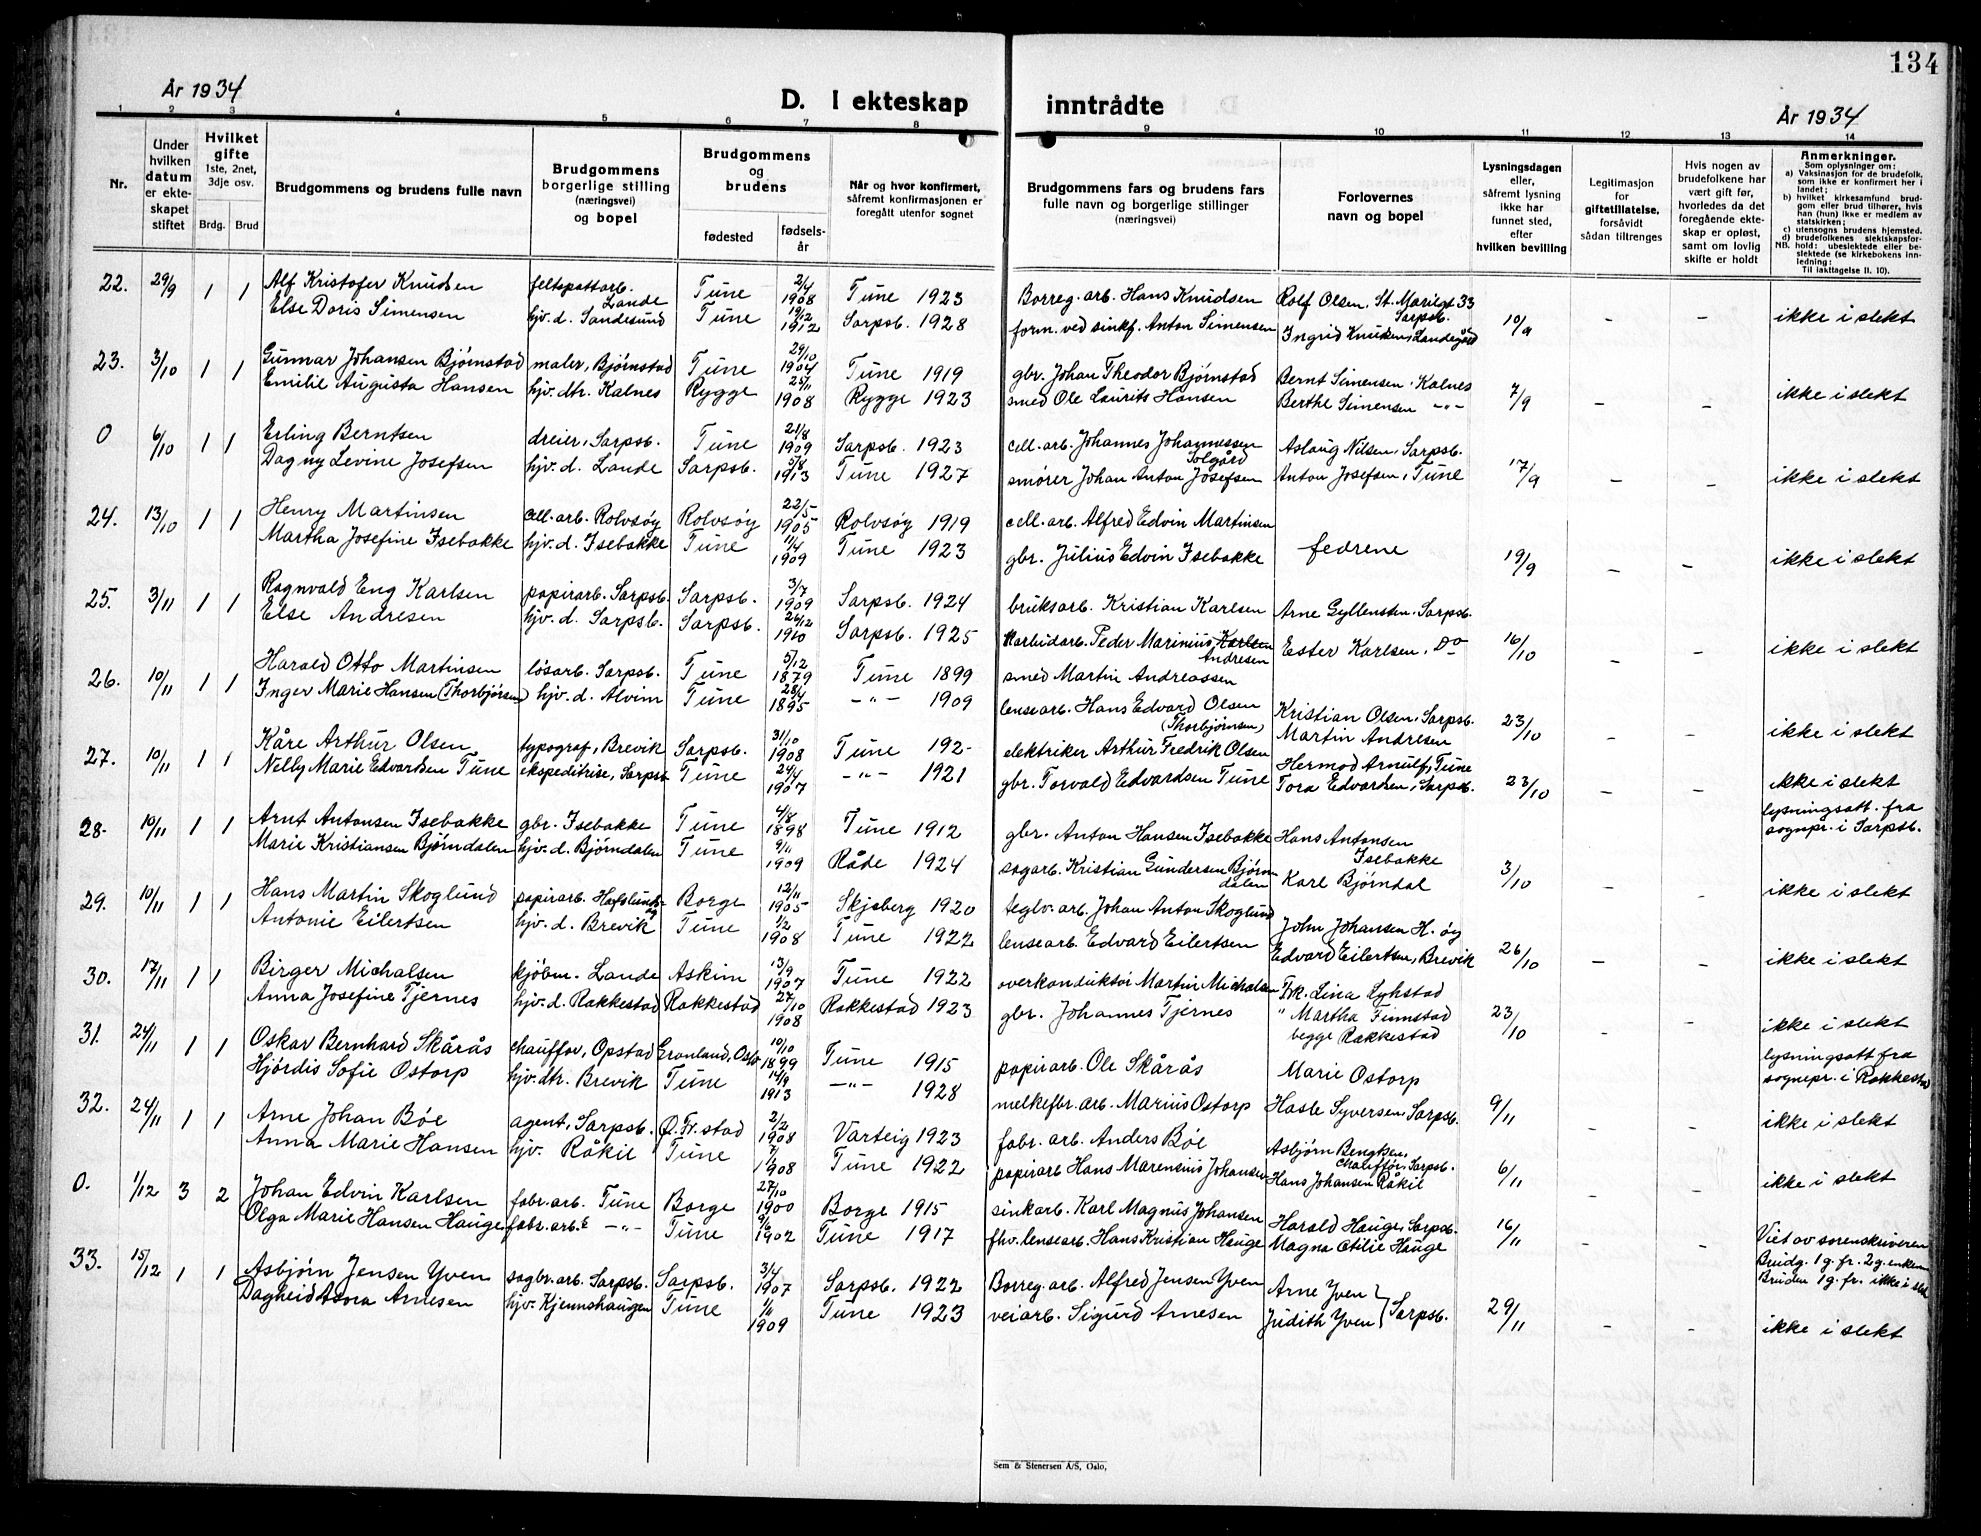 134
År 1934
D. I ekteskap inntrådte
År 1934
1 2 3 4 5 6 7 8 9 10 11 12 13 14
Nr.
Under hvilken datum er ekteskapet stiftet
Hvilket gifte 1ste, 2net, 3dje osv.
Brdg. Brud
Brudgommens og brudens fulle navn
Brudgommens borgerlige stilling (næringsvei) og bopel
Brudgommens og brudens
fødested
fødselsår
Når og hvor konfirmert, såfremt konfirmasjonen er foregått utenfor sognet
Brudgommens fars og brudens fars fulle navn og borgerlige stillinger (næringsvei)
Forlovernes navn og bopel
Lysningsdagen eller, såfremt lysning ikke har funnet sted, efter hvilken bevilling
Legitimasjon for giftetillatelse, forsåvidt sådan tiltrenges
Hvis nogen av brudefolkene har vært gift før, hvorledes da det foregående ekteskap er opløst, samt om lovlig skifte er holdt
Anmerkninger.
Som oplysninger om:
a) Vaksinasjon for de brudefolk, som ikke er konfirmert her i landet;
b) hvilket kirkesamfund brudgom eller brud tilhører, hvis han (hun) ikke er medlem av statskirken;
c) utensogns brudens hjemsted.
d) brudefolkenes slektskapsforhold: ubeslektede eller beslektede (se kirkebokens innledning:
NB. Til iakttagelse II. 10).
22. 29/9 1 1 Alf Kristofer Knudsen feltspattarb. Lande Tune 2/4 1908 Tune 1923 Borreg. arb. Hans Knudsen Rolf Olsen, St. Mariegt 33 Sarpsb. 10/9 - - ikke i slekt
Else Doris Simensen hjv. d. Sandesund Tune 19/12 1912 Sarpsb. 1928 form. ved sinkf. Anton Simensen Ingrid Knudsen, Landegård
23. 3/10 1 1 Gunnar Johansen Bjørnstad maler, Bjørnstad Tune 29/10 1904 Tune 1919 gbr. Johan Theodor Bjørnstad Bernt Simensen, Kalnes 7/9 - - ikke i slekt
Emilie Augusta Hansen hjv. dtr. Kalnes Rygge 25/11 1908 Rygge 1923 smed Ole Laurits Hansen Berthe Simensen -"-
0 6/10 1 1 Erling Berntsen dreier, Sarpsb. Tune 21/8 1909 Sarpsb. 1923 cell. arb. Johannes Johannessen Solgård Aslaug Nilsen, Sarpsb. 17/9 - - ikke i slekt
Dagny Levine Josefsen hjv. d. Lande Sarpsb. 5/8 1913 Tune 1927 smører Johan Anton Josefsen Anton Josefsen, Tune
24. 13/10 1 1 Henry Martinsen cell. arb. Rolvsøy Rolvsøy 22/5 1905 Rolvsøy 1919 cell. arb. Alfred Edvin Martinsen fedrene 19/9 - - ikke i slekt
Martha Josefine Isebakke hjv. d. Isebakke Tune 11/4 1909 Tune 1923 gbr. Julius Edvin Isebakke
25. 3/11 1 1 Ragnvald Eng Karlsen papirarb. Sarpsb. Sarpsb. 3/7 1909 Sarpsb. 1924 bruksarb. Kristian Karlsen Arne Gyllensten, Sarpsb. 16/10 - - ikke i slekt
Else Andresen hjv. d. Sarpsb. Sarpsb. 26/12 1910 Sarpsb. 1925 Karbidarb. Peder Marinius Karlsen Andresen Ester Karlsen, Do
26. 10/11 1 1 Harald Otto Martinsen løsarb. Sarpsb. Tune 5/12 1879 Tune 1899 smed Martin Andreassen Kristian Olsen, Sarpsb. 23/10 - - ikke i slekt
Inger Marie Hansen (Thorbjørsen) hjv. d. Alvim Tune 28/4 1895 -"- 1909 lensearb. Hans Edvard Olsen (Thorbjørnsen) Martin Andresen
27. 10/11 1 1 Kåre Arthur Olsen typograf, Brevik Sarpsb. 31/10 1908 Tune 192- elektriker Arthur Fredrik Olsen Hermod Arnulf, Tune 23/10 - - ikke i slekt
Nelly Marie Edvardsen Tune ekspeditrise, Sarpsb Tune 24/4 1907 -"- 1921 gbr. Torvald Edvardsen Tune Tora Edvardsen, Sarpsb. lysningsatt. fra sognepr. i Sarpsb.
28- 10/11 1 1 Arnt Antonsen Isebakke gbr. Isebakke Tune 4/8 1898 Tune 1912 gbr. Anton Hansen Isebakke Hans Antonsen Isebakke 3/10 - - ikke i slekt
Marie Kristiansen Bjørndalen hjv. d. Bjørndalen Tune 9/11 1909 Råde 1924 sagarb. Kristian Gundersen Bjørndalen Karl Bjørndal
29. 10/11 1 1 Hans Martin Skoglund papirarb. Hafslundsøy Borge 12/11 1905 Skjeberg 1920 teglv. arb. Johan Anton Skoglund John Johansen H. øy 26/10 - - ikke i slekt
Antonie Eilertsen hjv. d. Brevik Tune 1/2 1908 Tune 1922 lensearb. Edvard Eilertsen Edvard Eilertsen, Brevik
30. 17/11 1 1 Birger Michalsen kjøbm. Lande Askim 13/9 1907 Tune 1922 overkonduktør Martin Michalsen Frk. Lina Lyhstad 23/10 - - ikke i slekt
Anna Josefine Tjernes hjv. d. Rakkestad Rakkestad 27/10 1908 Rakkestad 1923 gbr. Johannes Tjernes " Martha Finnstad begge Rakkestad lysningsatt fra sognepr. i Rakkestad
31. 24/11 1 1 Oskar Bernhard Skårås chauffør, Opstad Grønland, Oslo 10/10 1899 Tune 1915 papirarb. Ole Skårås Marie Ostorp 9/11 - - ikke i slekt
Hjørdis Sofie Ostorp hjv. dtr. Brevik Tune 14/9 1913 -"- 1928 melkefbr. arb. Marius Ostorp Hasle Syversen, Sarpsb.
32. 24/11 1 1 Arne Johan Bøe agent, Sarpsb. Ø. Fr. stad 2/2 1908 Varteig 1923 fabr. arb. Anders Bøe Asbjørn Bengtsen, Chauffør, Sarpsb. 6/11 - - ikke i slekt
Anna Marie Hansen hjv. Råkil Tune 1908 Tune 1922 papirarb Hans Marensius Johansen Hans Johansen Råkil
0. 1/12 3 2 Johan Edvin Karlsen fabr. arb. Tune Borge 27/10 1900 Borge 1915 sinkarb. Karl Magnus Johansen Harald Hauge, Sarpsb. 16/11 - - Viet av sorenskriveren
Olga Marie Hansen Hauge fabr. arb.e -"- Tune 9/6 1902 Tune 1917 fhv. lensearb. Hans Kristian Hauge Magna Otilie Hauge Brudg. 1 g. fr. 2 g. enkem Bruden 1 g. fr. ikke i slekt
33. 15/12 1 1 Asbjørn Jensen Yven sagbr. arb. Sarpsb. Sarpsb. 3/4 1907 Sarpsb. 1922 Borreg. arb. Alfred Jensen Yven Arne Yven } Sarpsb. 29/11 - - ikke i slekt
Dagheid Asora Arnesen hjv. Kjennshaugen Tune 1909 Tune 1923 veiarb. Sigurd Arnesen Judith Yven
Sem & Stenersen A/S, Oslo,